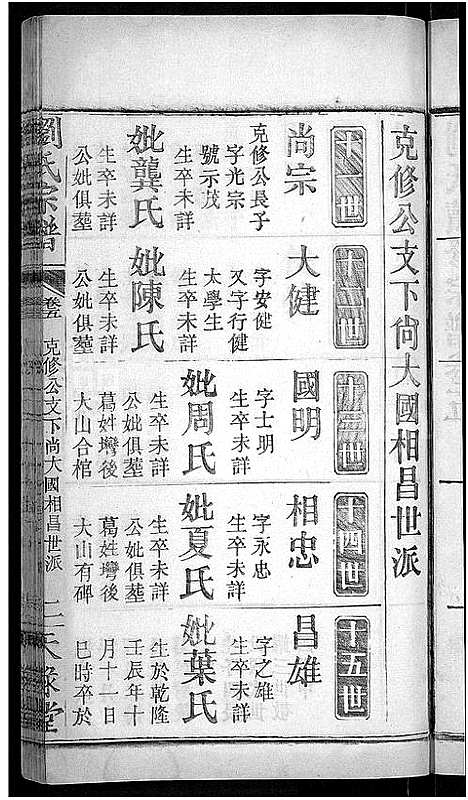 克修公支下尙大國相昌世派
十一世
尚宗
克修公長子
字光宗
號示茂
生卒未詳
妣龔氏
生卒未詳
公妣俱塟
十二世
大健
字安健
又字行健
太學生
生卒未詳
妣陳氏
生卒未詳
公妣俱塟
十三世
國明
字士明
生卒未詳
妣周氏
生卒未詳
公妣俱塟
葛姓塆後
大山合棺
十四世
相忠
字永忠
生卒未詳
妣夏氏
生卒未詳
公妣俱塟
葛姓塆後
大山有碑
十五世
昌雄
字之雄
生卒未詳
妣葉氏
生於乾隆
壬辰年十
月十一日
巳時卒於
劉氏宗譜
卷
克修公支下尙大國相昌世派
堂